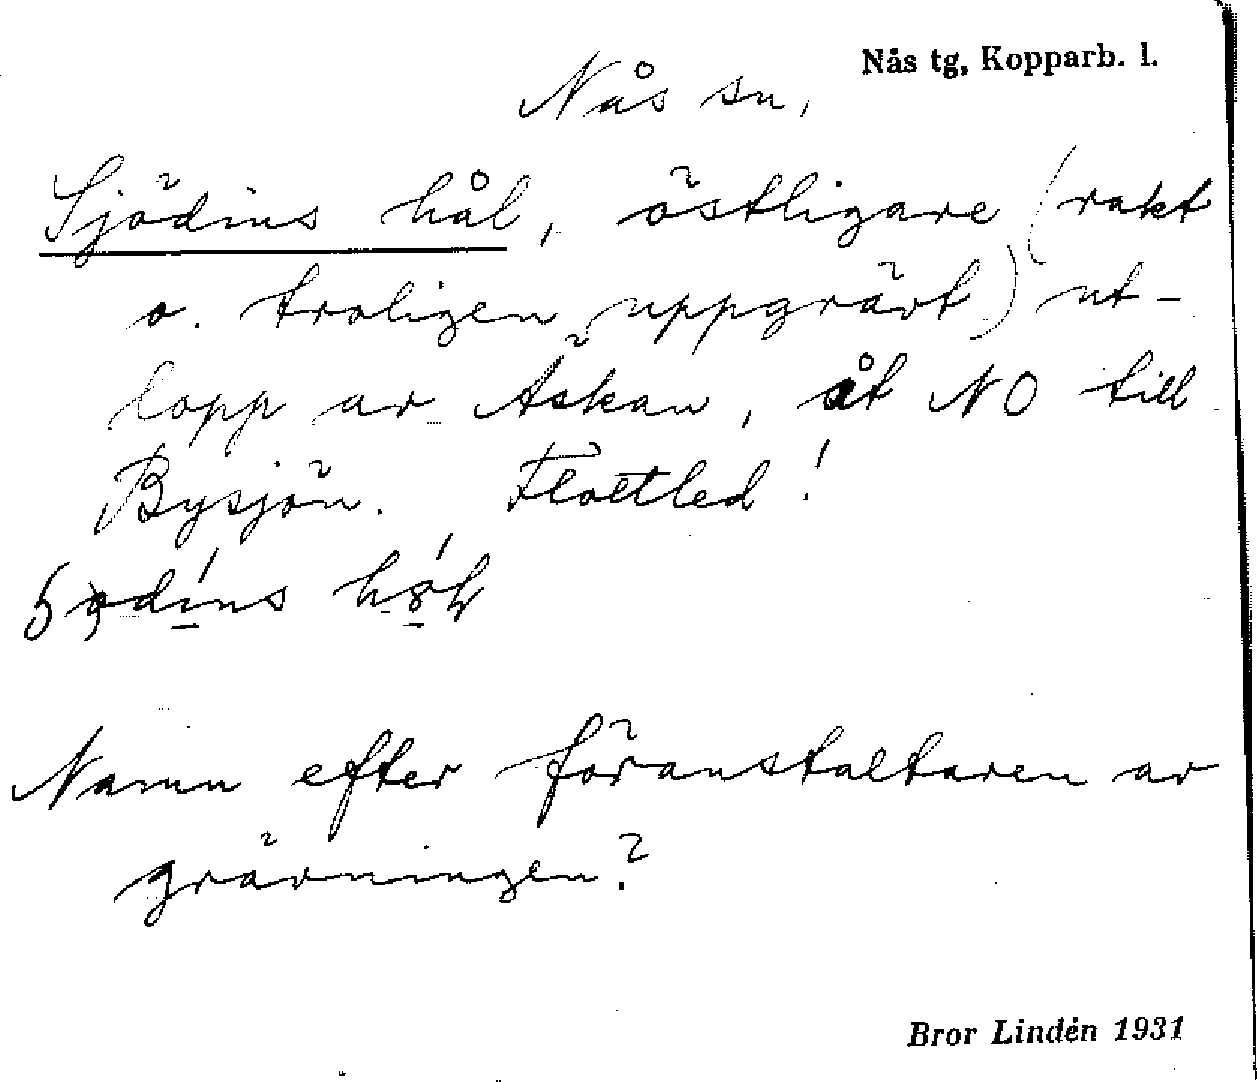 Nås tg, Kopparb. l.
Nås sn,
Sjödins hål, östligare (rakt
o. troligen uppgrävt) ut-
lopp av Äskan, åt NO till
Bysjön. Flottled!
Namn efter föranstaltaren av
grävningen?
Bror Lindén 1931